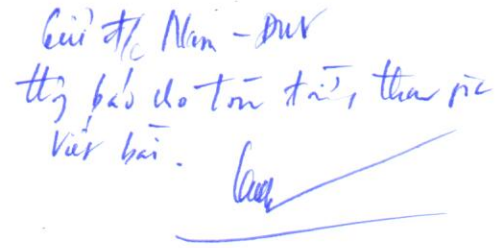 Gửi đ/c Nam - ĐUV
thông báo cho toàn đảng tham gia
viết bài.